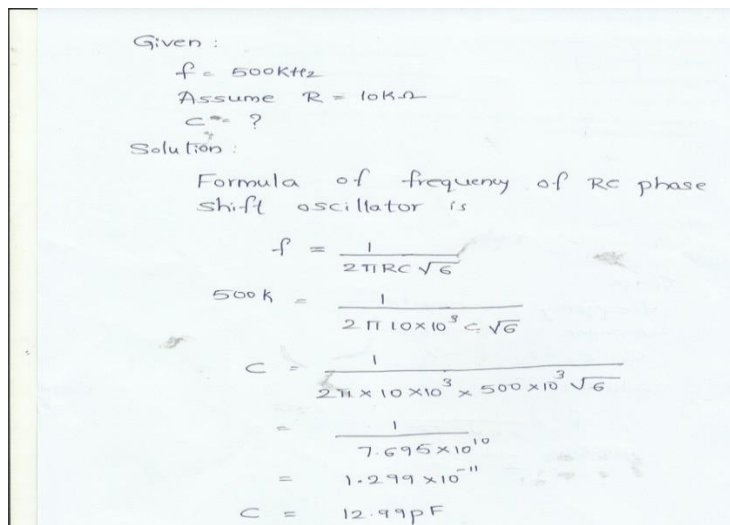 Given :
f = 500KHz
Assume R = 10KΩ
C = ?
Solution :
Formula of frequency of RC phase
shift oscillator is
f = 1 / 2πRC√6
500K = 1 / 2π 10×10³ C √6
C = 1 / 2π × 10 × 10³ × 500 × 10³ √6
= 1 / 7.695×10¹⁰
= 1.299 × 10⁻¹¹
C = 12.99pF